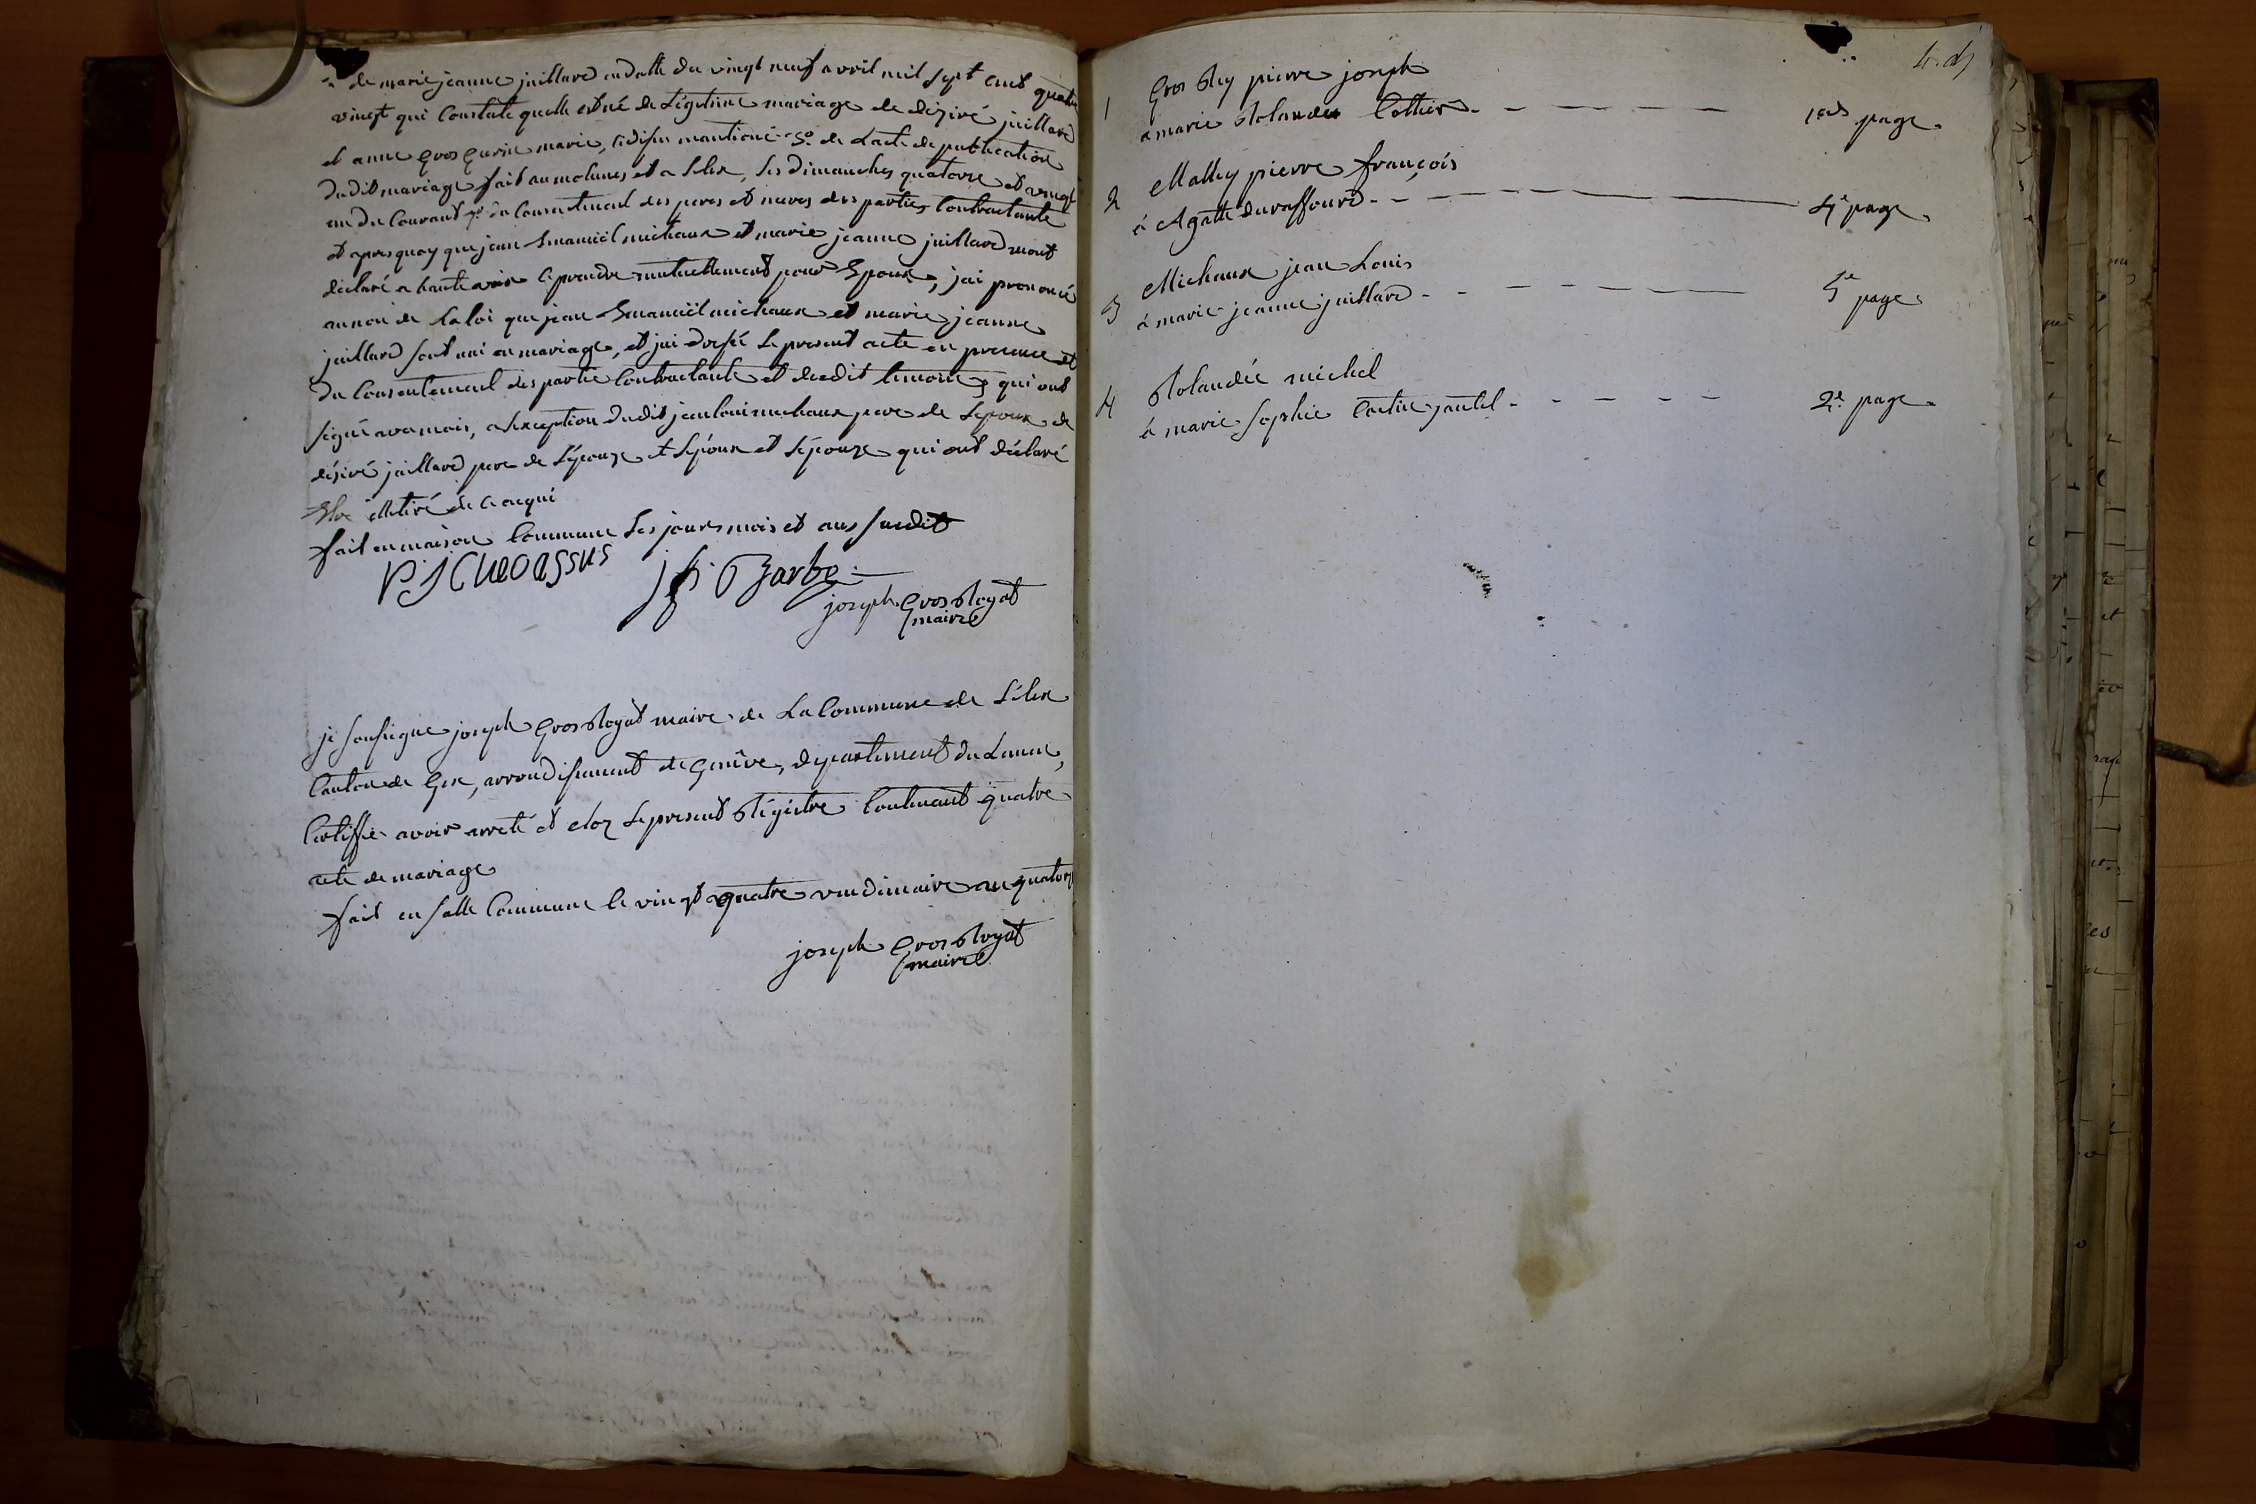 de marie jeanne juillard en datte du vingt neuf avril mil sept cent quatre
vingt qui Constate quelle est né de Légitime mariage de déziré juillard
et anne gros gurin marie, cidesu mantioné 5o. de Lacte de publication
dudit mariage fait au molunes et a Lélex, les dimanches quatorse et vingt
un du Courant du Consentement des peres et meres des parties Contractante
et apres quoy que jean Emanuël michaux et marie jeanne juillard mont
déclaré a haute voix ce prendre mutuellement pour Epoux, jai prononcé
au nom de La loi que jean Emanuël michaux et marie jeanne
juillard sont uni en mariage, et jai dressé Le present acte en presence et
du Consentement des partie Contractante et desdit temoins qui ont
signé avec mois, a Exception dudit jean loui michaux pere de Lepoux de
désiré juillard pere de Lépouze et Lépoux et Lépouze qui ont déclaré
Etre illetiré de ce enqui
fait en maison Commune Les jours mois et ans susdit
P. J Chevassus
j f. Barbe
joseph Gros Royat
maire
je sousigne joseph Gros Royat maire de La Commune de Lélex
Canton de Gex, arrondisement de Genêve, departement du Leman,
Certiffie avoir arreté et cloz Le present Régistre Contenant quatre
acte de mariage
fait en salle Commune le vingt quatre vendimaire an quatorz
joseph Gros Royat
maire
1 Gros Rey pierre joseph
a marie Rolandez Cottier - - - - - - 1er page
2 Mathy pierre françois
à Agatte duraffourd - - - - - 4e page
3 Michaux jean Louis
à marie jeanne juillard - - - - - - 5e page
4 Rolandéz michel
à marie Sophie - - - - - 2e page